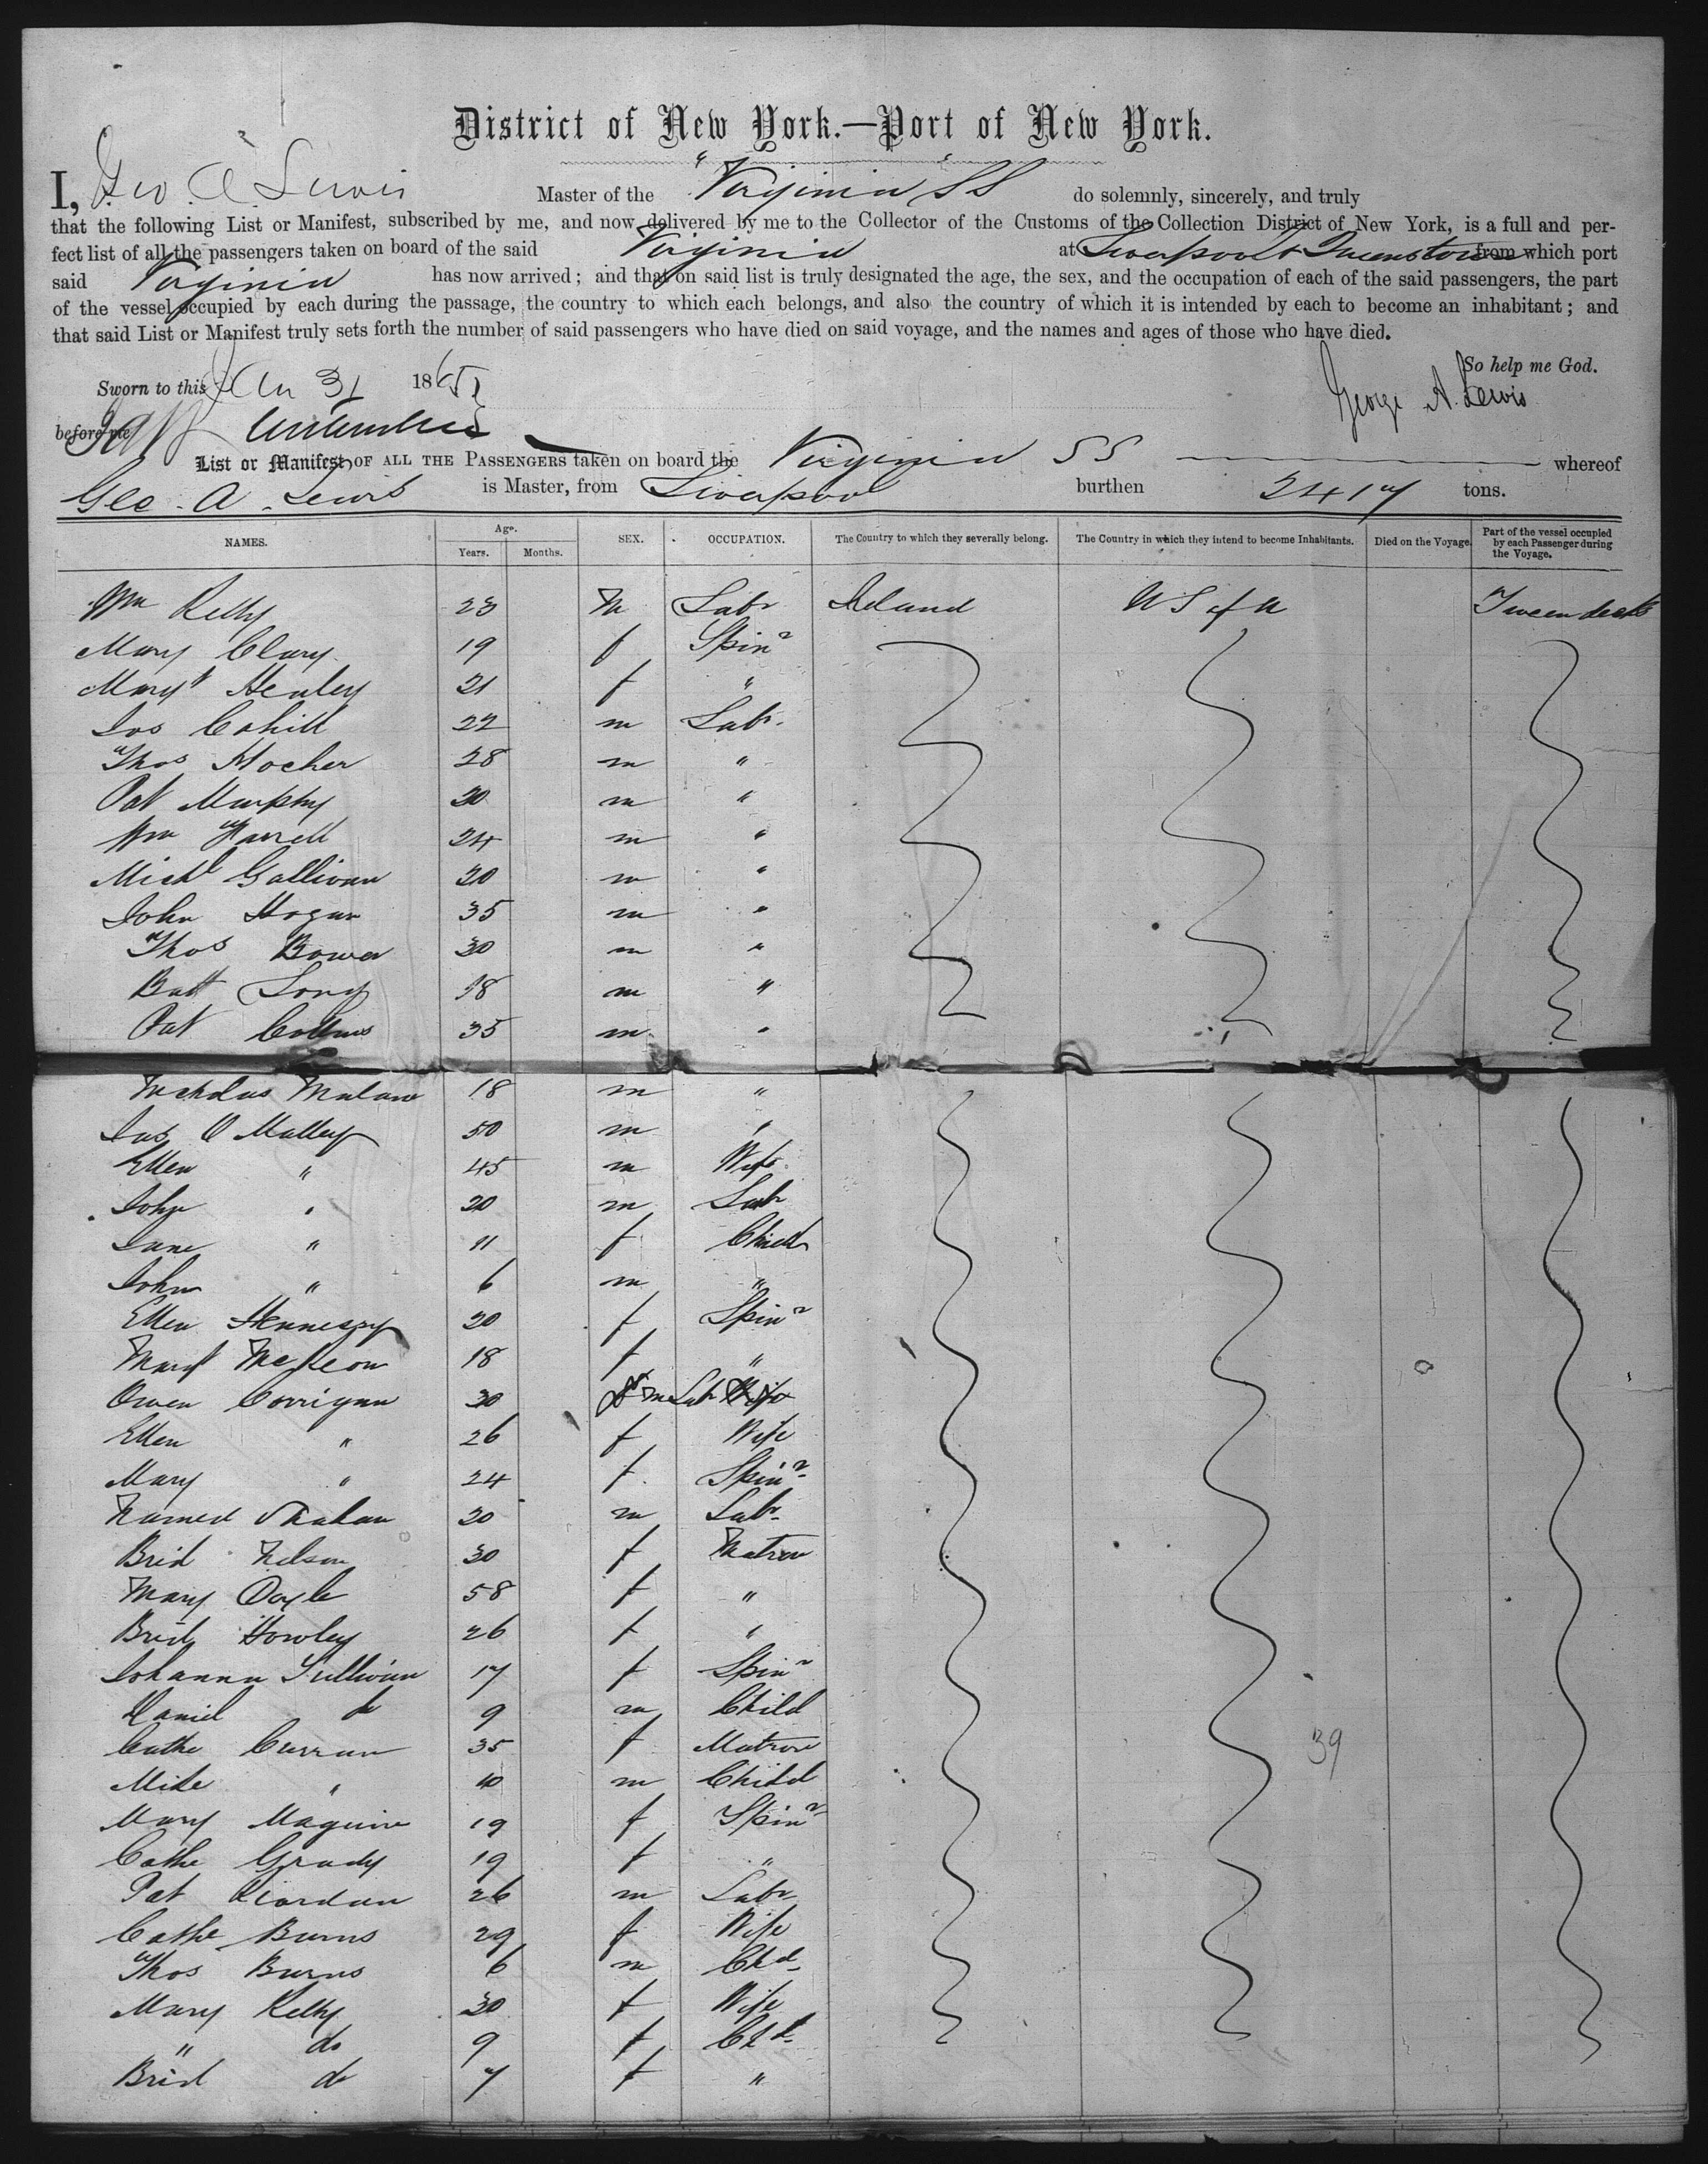 District of New York.—Port of New York.
I, Geo. A Lewis Master of the "Virginia SS" do solemnly, sincerely, and truly
that the following List or Manifest, subscribed by me, and now delivered by me to the Collector of the Customs of the Collection District of New York, is a full and per-
fect list of all the passengers taken on board of the said Virginia at Liverpool & Queenstown from which port
said Virginia has now arrived; and that on said list is truly designated the age, the sex, and the occupation of each of the said passengers, the part
of the vessel occupied by each during the passage, the country to which each belongs, and also the country of which it is intended by each to become an inhabitant; and
that said List or Manifest truly sets forth the number of said passengers who have died on said voyage, and the names and ages of those who have died.
So help me God.
Sworn to this Jan 31 1865 George A. Lewis
before me
List or Manifest OF ALL THE PASSENGERS taken on board the Virginia SS whereof
Geo. A. Lewis is Master, from Liverpool burthen 2417 tons.
NAMES. Age. Years. Months. SEX. OCCUPATION. The Country to which they severally belong. The Country in which they intend to become Inhabitants. Died on the Voyage. Part of the vessel occupied by each Passenger during the Voyage.
Wm Kelly 23 M Labr Ireland U S of A Tween decks
Mary Clary 19 f Spinr
Margt Henley 21 f "
Jos Cahill 22 m Labr.
Thos Mocher 28 m "
Pat Murphy 20 m "
Wm Farrell 24 m "
Michl Gallivan 20 m "
John Hogan 35 m "
Thos Bower 30 m "
Batt Long 18 m "
Pat Collins 35 m "
Nicholas Malone 18 m "
Jas O Malley 50 m "
Ellen " 45 m Wife
John " 20 m Lab
Jane " 11 f Child
John " 6 m "
Ellen Hennessy 20 f Spinr
Margt McKeon 18 f "
Owen Corrigan 30 m Labr
Ellen " 26 f Wife
Mary " 24 f Spinr
20 m Labr
Brid Nelson 30 f Matron
Mary Doyle 58 f "
Brid Howley 26 f "
Johanna Sullivan 17 f Spinr
Daniel do 9 m Child
Cathe Curran 35 f Matron
Mike " 10 m Child
39
Mary Maguire 19 f Spinr
Cathe Grady 19 f "
Pat Riordan 26 m Labr
Cathe Burns 29 f Wife
Thos Burns 6 m Chd
Mary Kelly 30 f Wife
" do 9 f Chd
Brid do 7 f "